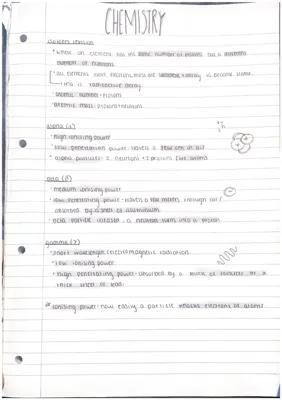 CHEMISTRY
• when an element has the same number of protons but a different
number of neutrons
• all elements
this is radioactive decay
• atomic number = protons
• atomic mass = protons + neutrons
alpha (α)
• high ionising power
• low penetration power - travels a few cm in air
• alpha particles = 2 neutrons + 2 protons
beta (β)
• medium ionising power
• low penetrating power - travels a few metres through air /
absorbed by a sheet of aluminium
• beta particle a neutron turns into a proton
gamma (γ)
• short wavelength electromagnetic radiation
• low ionising power
• high penetrating power - absorbed by a block of concrete or a
thick sheet of lead
* ionising power - how easily a particle knocks electrons of atoms